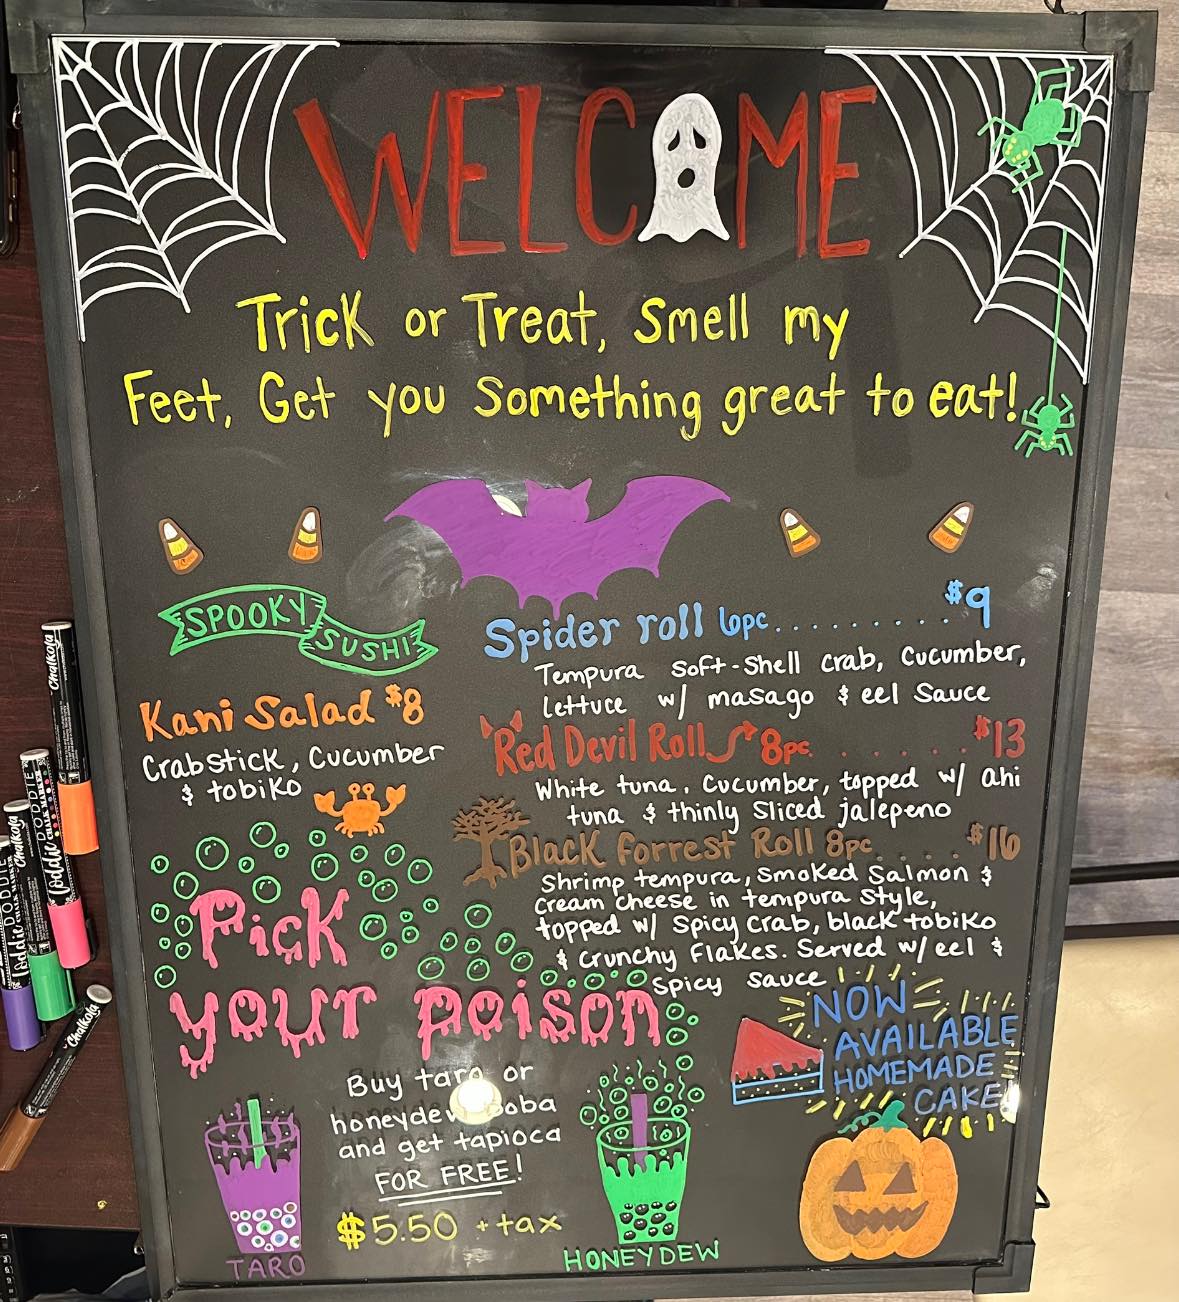 WELCOME
Trick or Treat, Smell my
Feet, Get you Something great to eat!
SPOOKY
SUSHI
Kani Salad $8
Crabstick, Cucumber
& tobiko
Spider roll 6pc.......... $9
Tempura Soft-Shell Crab, Cucumber,
lettuce w/ masago & eel Sauce
Red Devil Roll 8pc. . . . . . . $13
White tuna, Cucumber, topped w/ ahi
tuna & thinly Sliced jalepeno
Black Forrest Roll 8pc . . . . $16
Shrimp tempura, Smoked Salmon &
Cream cheese in tempura Style,
topped w/ Spicy Crab, black tobiko
& Crunchy Flakes. Served w/ eel &
Spicy Sauce
Pick
your poison
Buy taro or
honeydew boba
and get tapioca
FOR FREE!
$5.50 + tax
TARO
HONEYDEW
NOW
AVAILABLE
HOMEMADE
CAKE
Chalkola
Loddie DOODLE
Chalkola
Loddie DOODLE
Chalkola